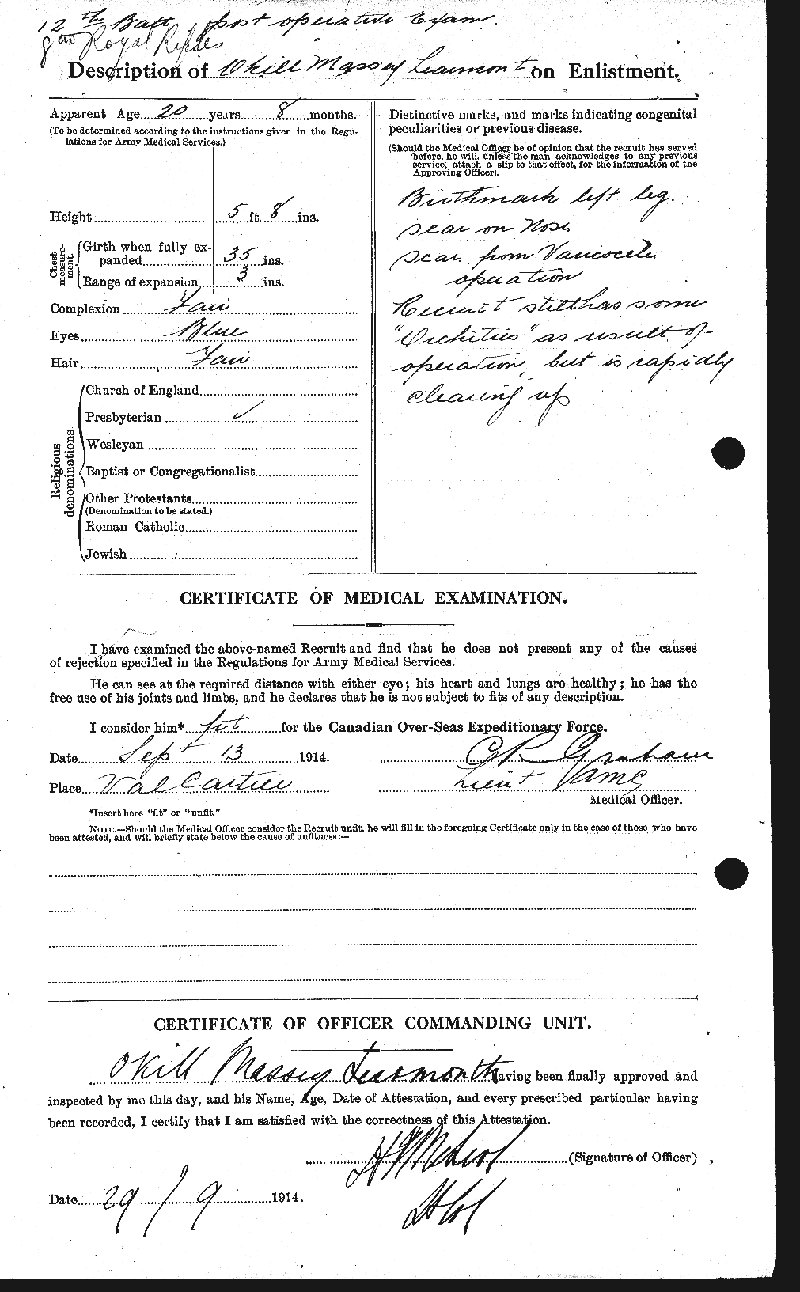 12th Batt post operative Exam.
8th Royal Rifles
Description of Okill Massey Learmonth on Enlistment.
Apparent Age 20 years 8 months.
(To be determined according to the instructions given in the Regu-
lations for Army Medical Services.)
Height 5 ft. 8 ins.
Chest measure-ment.
Girth when fully ex-
panded 35 ins.
Range of expansion 3 ins.
Complexion Fair
Eyes Blue
Hair Fair
Religious denominations.
Church of England
Presbyterian ✓
Wesleyan
Baptist or Congregationalist
Other Protestants
(Denomination to be stated.)
Roman Catholic
Jewish
Distinctive marks, and marks indicating congenital
peculiarities or previous disease.
(Should the Medical Officer be of opinion that the recruit has served
before, he will, unless the man acknowledges to any previous
service, attach a slip to that effect, for the information of the
Approving Officer).
Birthmark left leg.
scar on Nose
scar from Varicocele
operation
Recruit still has some
"Orchitis" as result of
operation, but is rapidly
clearing up
CERTIFICATE OF MEDICAL EXAMINATION.
I have examined the above-named Recruit and find that he does not present any of the causes
of rejection specified in the Regulations for Army Medical Services.
He can see at the required distance with either eye; his heart and lungs are healthy; he has the
free use of his joints and limbs, and he declares that he is not subject to fits of any description.
I consider him* fit for the Canadian Over-Seas Expeditionary Force.
Date Sept 13 1914.
Graham
Place Val Cartier
Lieut AMC
Medical Officer.
*Insert here "fit" or "unfit."
NOTE.—Should the Medical Officer consider the Recruit unfit, he will fill in the foregoing Certificate only in the case of those who have
been attested, and will briefly state below the cause of unfitness:—
CERTIFICATE OF OFFICER COMMANDING UNIT.
Okill Massey Learmonth having been finally approved and
inspected by me this day, and his Name, Age, Date of Attestation, and every prescribed particular having
been recorded, I certify that I am satisfied with the correctness of this Attestation.
(Signature of Officer)
Lt Col
Date 29/9 1914.